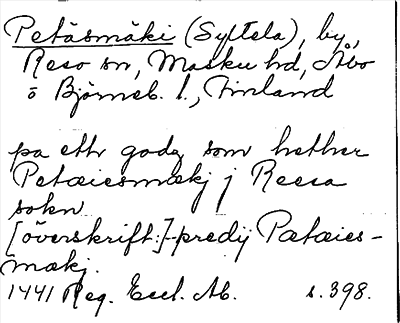 Petäsmäki (Syltela), by,
Reso sn, Masku hd, Åbo
o Björneb. l., Finland
pa ett godz som hether
Petæiesmækj j Reesa
sokn
[överskrift:] predij Pætæies-
mækj.
1441 Reg. Eccl. Ab. s. 398.